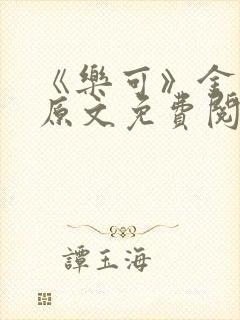 《樂可》全
原文免費閱
譚玉海